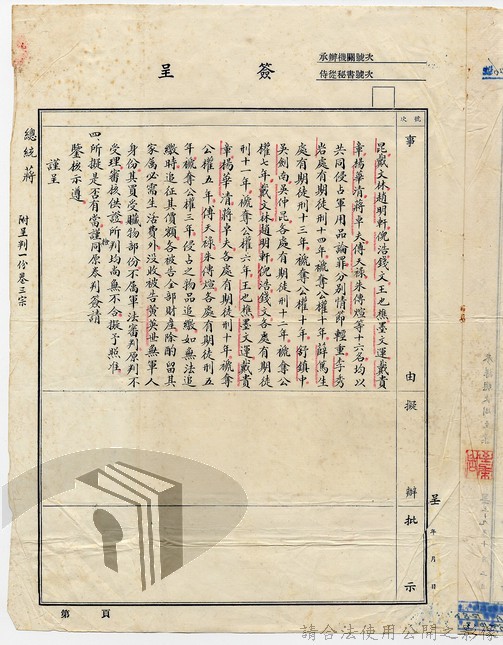 簽呈
承辦機關號次
侍從秘書號次
號次
事由
擬辦
批示
呈 年 月 日
昆戴文林趙明軒倪浩錢文王也樵墨文運戴貴
章楊華清蔣卓夫傅天祿朱傳煊等十六名均以
共同侵占軍用品論罪分別情節輕重李秀
岩處有期徒刑十四年褫奪公權十年薛萬生
處有期徒刑十三年褫奪公權十年舒鎮中
吳劍南吳仲昆各處有期徒刑十二年褫奪公
權七年戴文林趙明軒倪浩錢文各處有期徒
刑十一年褫奪公權六年王也樵墨文運戴貴
章楊華清蔣卓夫各處有期徒刑十年褫奪
公權五年傅天祿朱傳煊各處有期徒刑五
年褫奪公權三年侵占之物品追繳如無法追
繳時追征其價額各被告全部財産除酌留其
家属必需生活費外沒收被告黄英世無軍人
身份其買受贓物部份不属軍法審判原判不
受理審核供證所判均尚無不合擬予照准
四所擬是否有當謹檢同原卷判簽請
鑒核示遵
謹呈
總統蔣
附呈判一份卷三宗
第 頁
請合法使用公開之影像